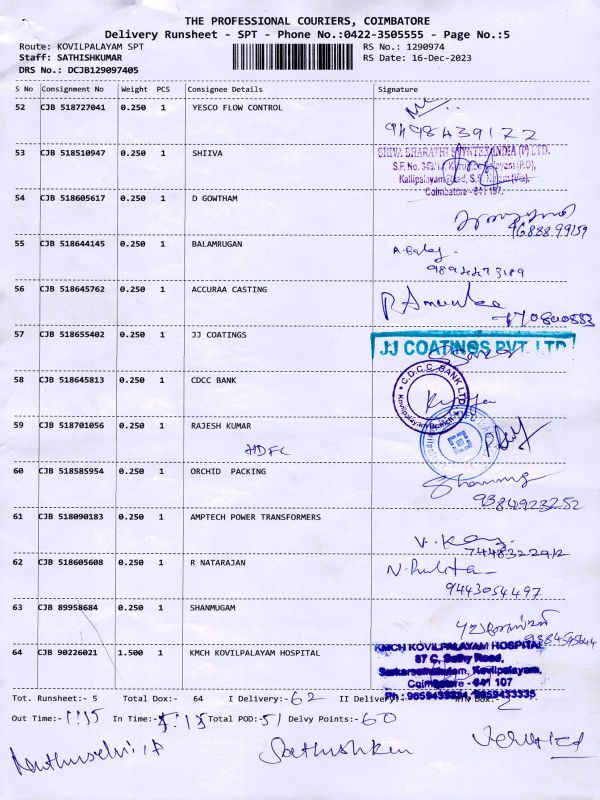 THE PROFESSIONAL COURIERS, COIMBATORE
Delivery Runsheet - SPT - Phone No.:0422-3505555 - Page No.:5
Route: KOVILPALAYAM SPT RS No.: 1290974
Staff: SATHISHKUMAR RS Date: 16-Dec-2023
DRS No.: DCJB129097405
S No Consignment No Weight PCS Consignee Details Signature
52 CJB 518727041 0.250 1 YESCO FLOW CONTROL
9498439122
53 CJB 518510947 0.250 1 SHIIVA
SHIVA BHARATHI SYNTEX INDIA (P) LTD.
Coimbatore - 641 107.
54 CJB 518605617 0.250 1 D GOWTHAM
9688899159
55 CJB 518644145 0.250 1 BALAMRUGAN
56 CJB 518645762 0.250 1 ACCURAA CASTING
57 CJB 518655402 0.250 1 JJ COATINGS JJ COATINGS PVT. LTD
58 CJB 518645813 0.250 1 CDCC BANK C.D.C.C. BANK LTD
59 CJB 518701056 0.250 1 RAJESH KUMAR
HDFC
60 CJB 518585954 0.250 1 ORCHID PACKING
9384923252
61 CJB 518090183 0.250 1 AMPTECH POWER TRANSFORMERS
62 CJB 518605608 0.250 1 R NATARAJAN
9443054497
63 CJB 89958684 0.250 1 SHANMUGAM
64 CJB 90226021 1.500 1 KMCH KOVILPALAYAM HOSPITAL KMCH KOVILPALAYAM HOSPITAL
87 C, Sathy Road,
Kovilpalayam,
Coimbatore - 641 107
Tot. Runsheet:- 5 Total Dox:- 64 I Delivery:- 62 II Delivery:- RTN Dox:- 2
Out Time:- 1:15 In Time:- Total POD:- 51 Delvy Points:- 60
Sathishkum Verified